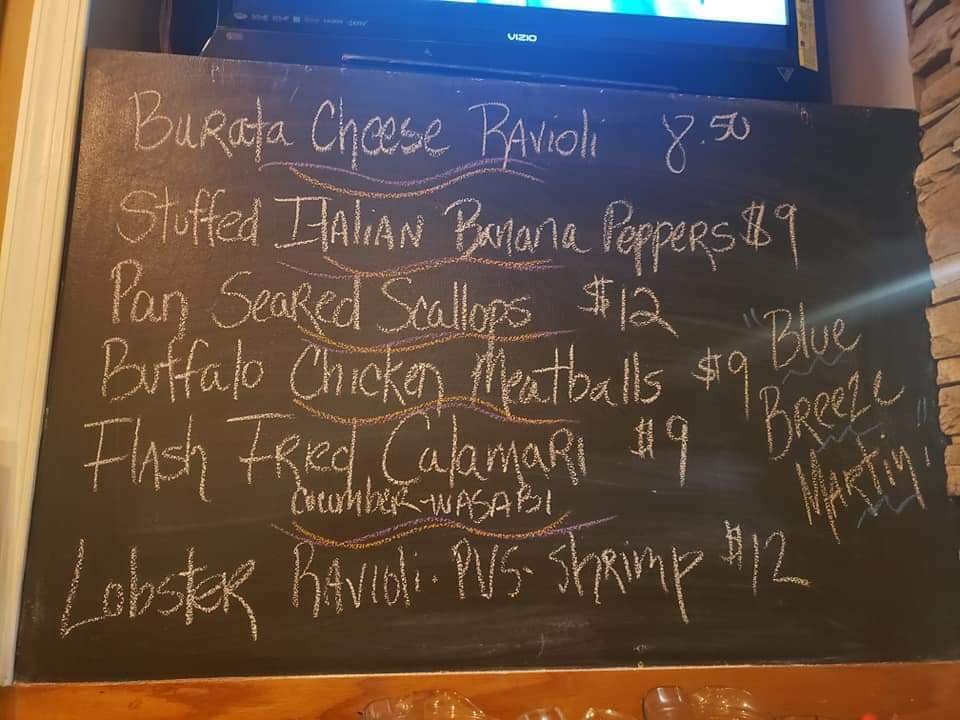 VIZIO
BURata Cheese RAvioli 8.50
Stuffed ITALIAN Banana PeppeRS $9
Pan SeaRed Scallops $12
Buffalo Chicken Meatballs $9
Flash FRied CalamaRi $9
Cucumber-WASABI
LobsteR RAVioli. PVS- shrimp $12
"Blue
BReeze
MARtini"